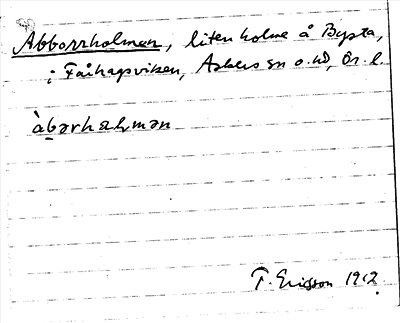 Abborrholmen, liten holme å Bysta,
i Fåhagsviken, Askers sn o. hd, Ör. l.
àbərhalmən
F. Ericsson 1912.